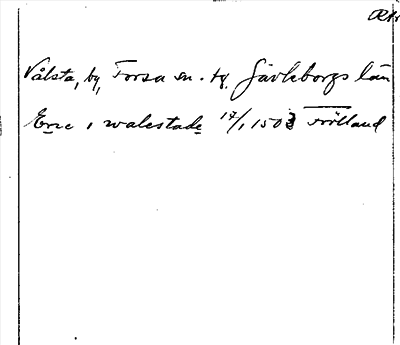 Vålsta, by, Forsa sn. Gävleborgs län
Eric i walestade 17/1 1503 Frölland